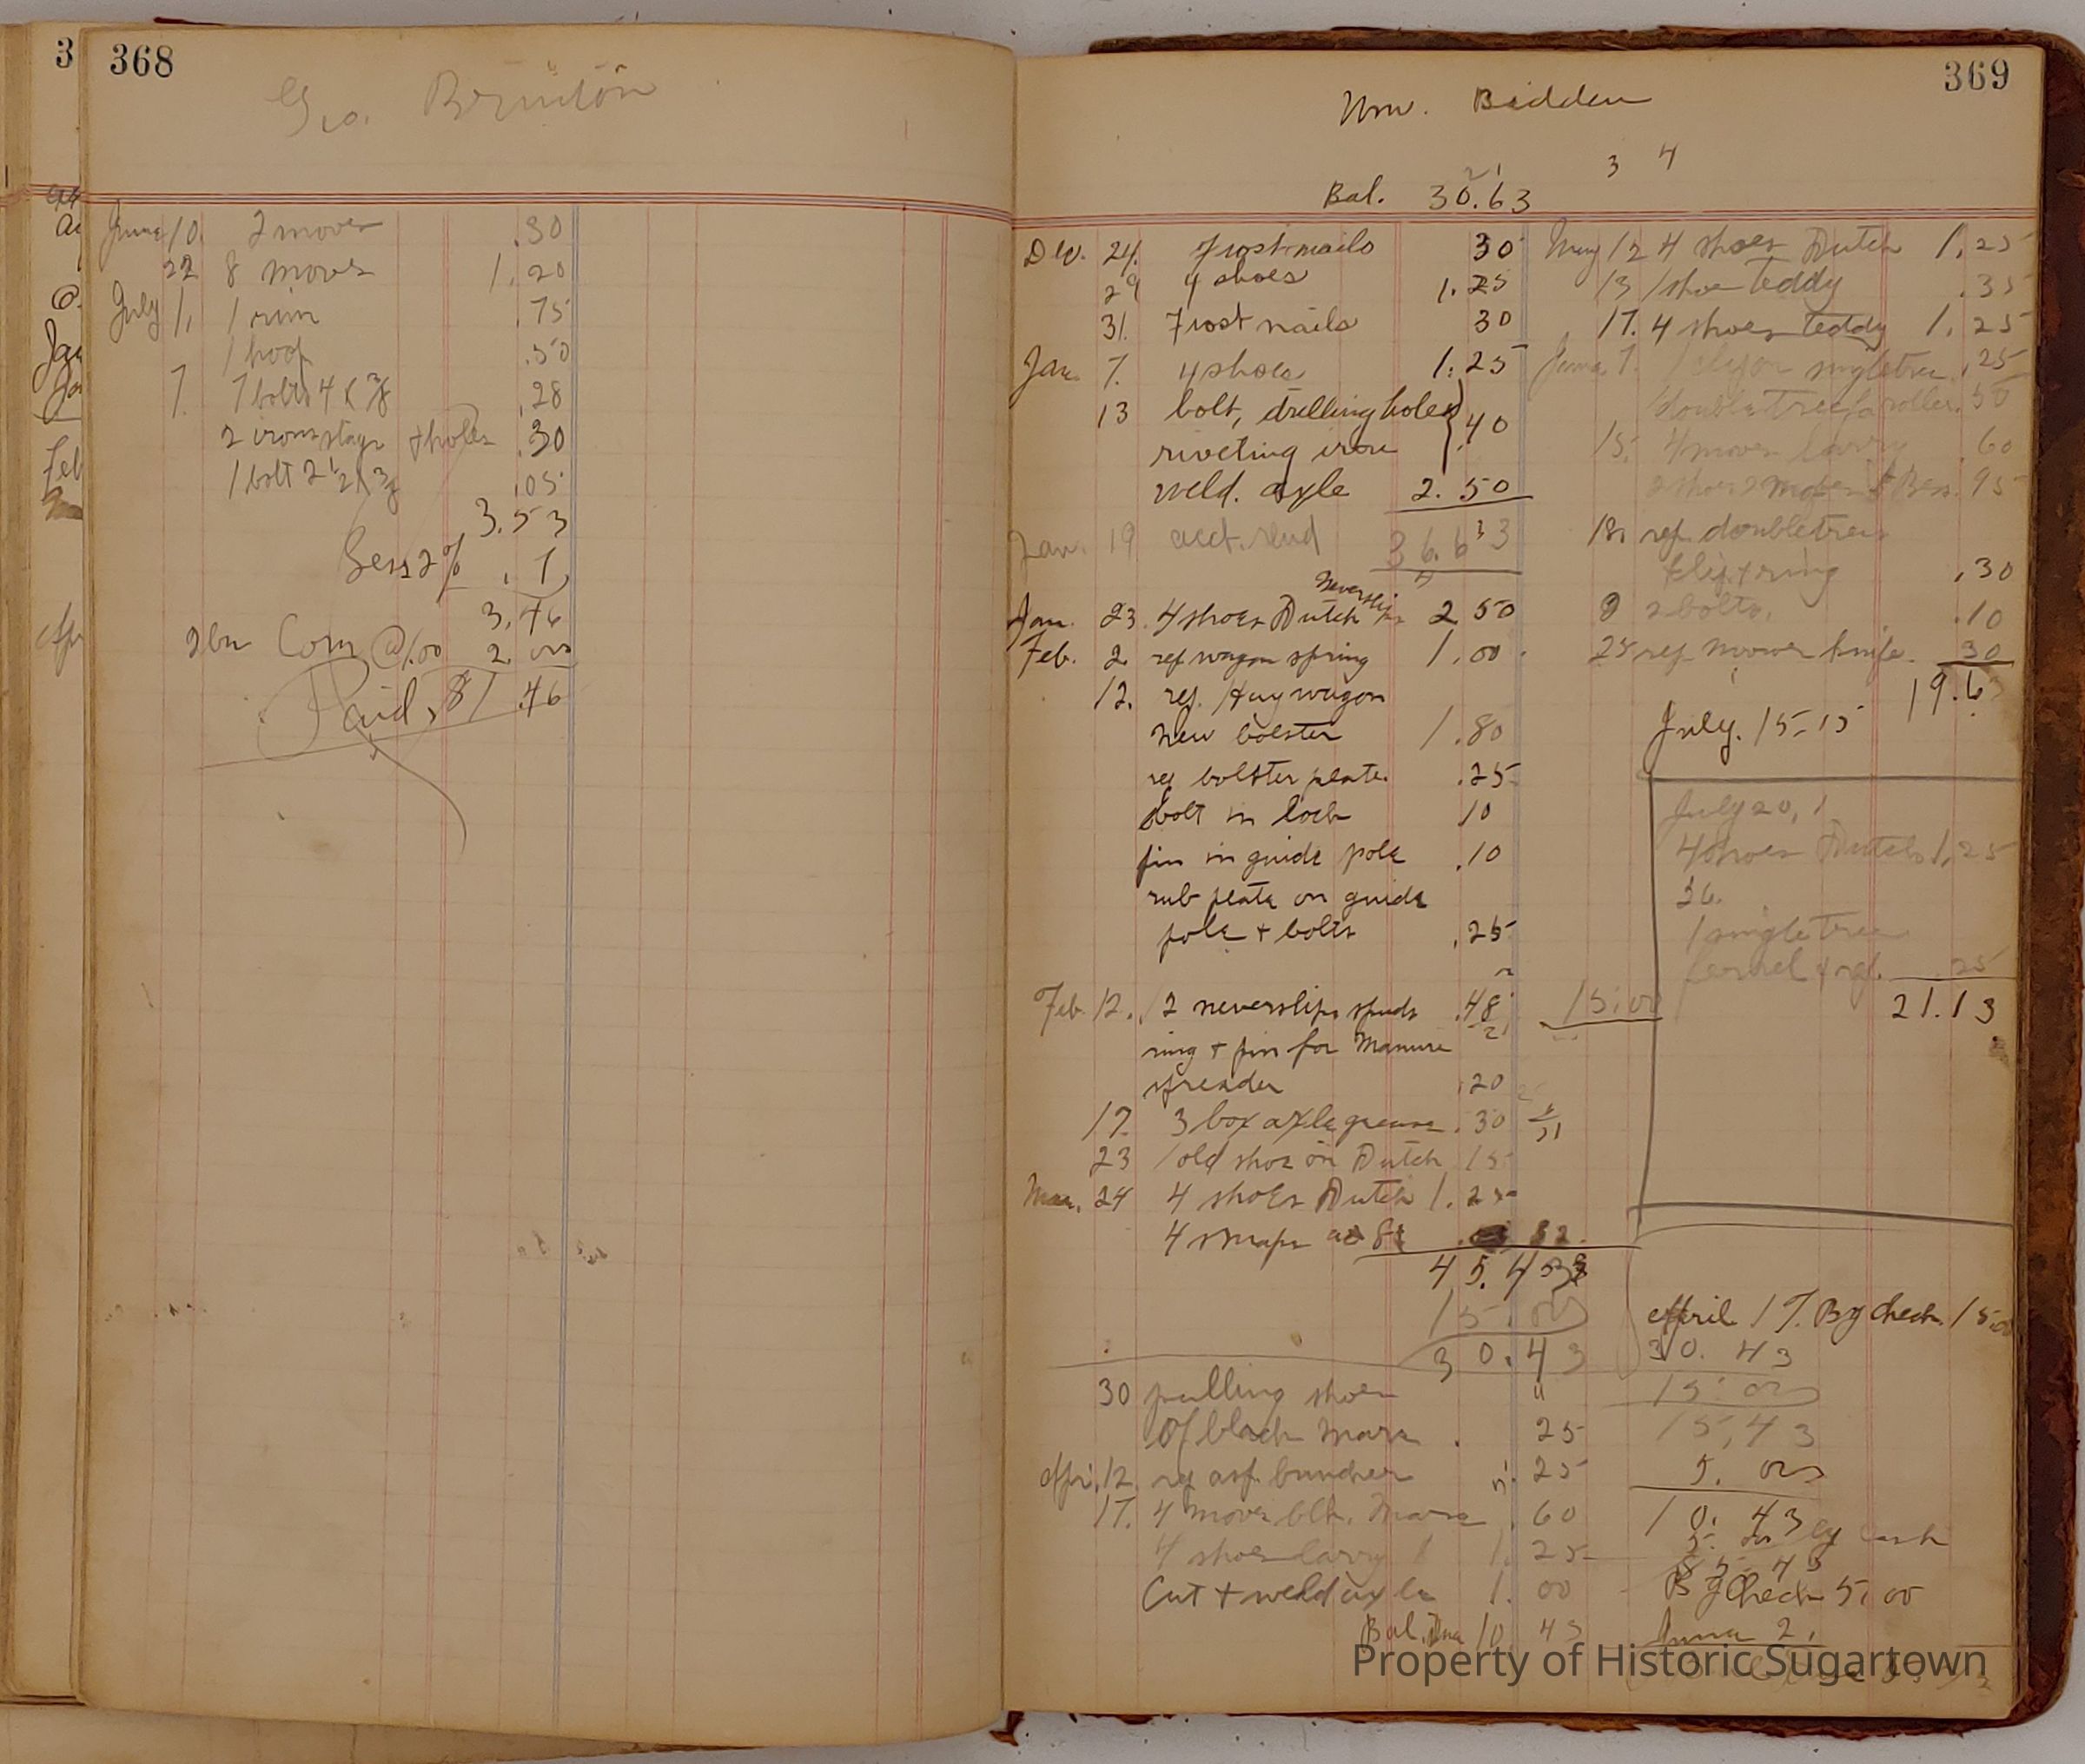 3
368
Geo. Brinton
June 10. 2 moves .30
22 8 moves 1.20
July 1, 1 rim .75
1 hoof .50
7. 7 bolts 4 x 3/8 .28
2 irons stays + holes .30
1 bolt 2 1/2 x 3/8 .05
3.53
Less 2% .7
3.46
2 bu Corn @1.00 2.00
Paid, 8/ .46
369
Wm. Bidden
3 4
Bal. 30.63
Dec. 24. Frost nails 30
29 4 shoes 1.25
31. Frost nails 30
Jan. 7. 4 shoes 1.25
13 bolt, drilling holes
riveting iron .40
weld. axle 2.50
Jan. 19 acct. rend 36.63
Neverslip
Jan. 23. 4 shoes Dutch 2 50
Feb. 2. rep wagon spring 1.00
12. rep. Hay wagon
New bolster 1.80
rep bolster plate .25
bolt in lock 10
pin in guide pole .10
rub plate on guide
pole + bolts .25
Feb. 12. 12 neverslips spuds .48
ring + pin for Manure
spreader .20
17. 3 box axle grease .30
23 1 old shoe on Dutch 15
Mar. 24 4 shoes Dutch 1.25
4 snaps at 8¢ 32
45.43
15.00
30.43
30 pulling shoes
Of black Mare . 25
Apr. 12. rep 25
17. 4 moves blk. Mare .60
4 shoes Larry 1.25
Cut + weld axle 1.00
Bal. Due 10 43
May 12 4 shoes Dutch 1.25
13 1 shoe Teddy .35
17. 4 shoes Teddy 1.25
June 7. singletree .25
doubletree roller .50
15. 4 moves Larry .60
2 shoes 2 moves Bess .95
18. rep. doubletree
clip + ring .30
2 bolts. .10
25 rep mower knife. 30
19.63
July. 15-15
July 20, 1
4 shoes Dutch 1.25
26.
1 singletree
ferruel + rep. .25
15.00
21.13
April 17. By Check. 15.00
30.43
15.00
15.43
5.00
10.43
5.00 By Cash
5.43
By Check 5.00
June 2,
Property of Historic Sugartown